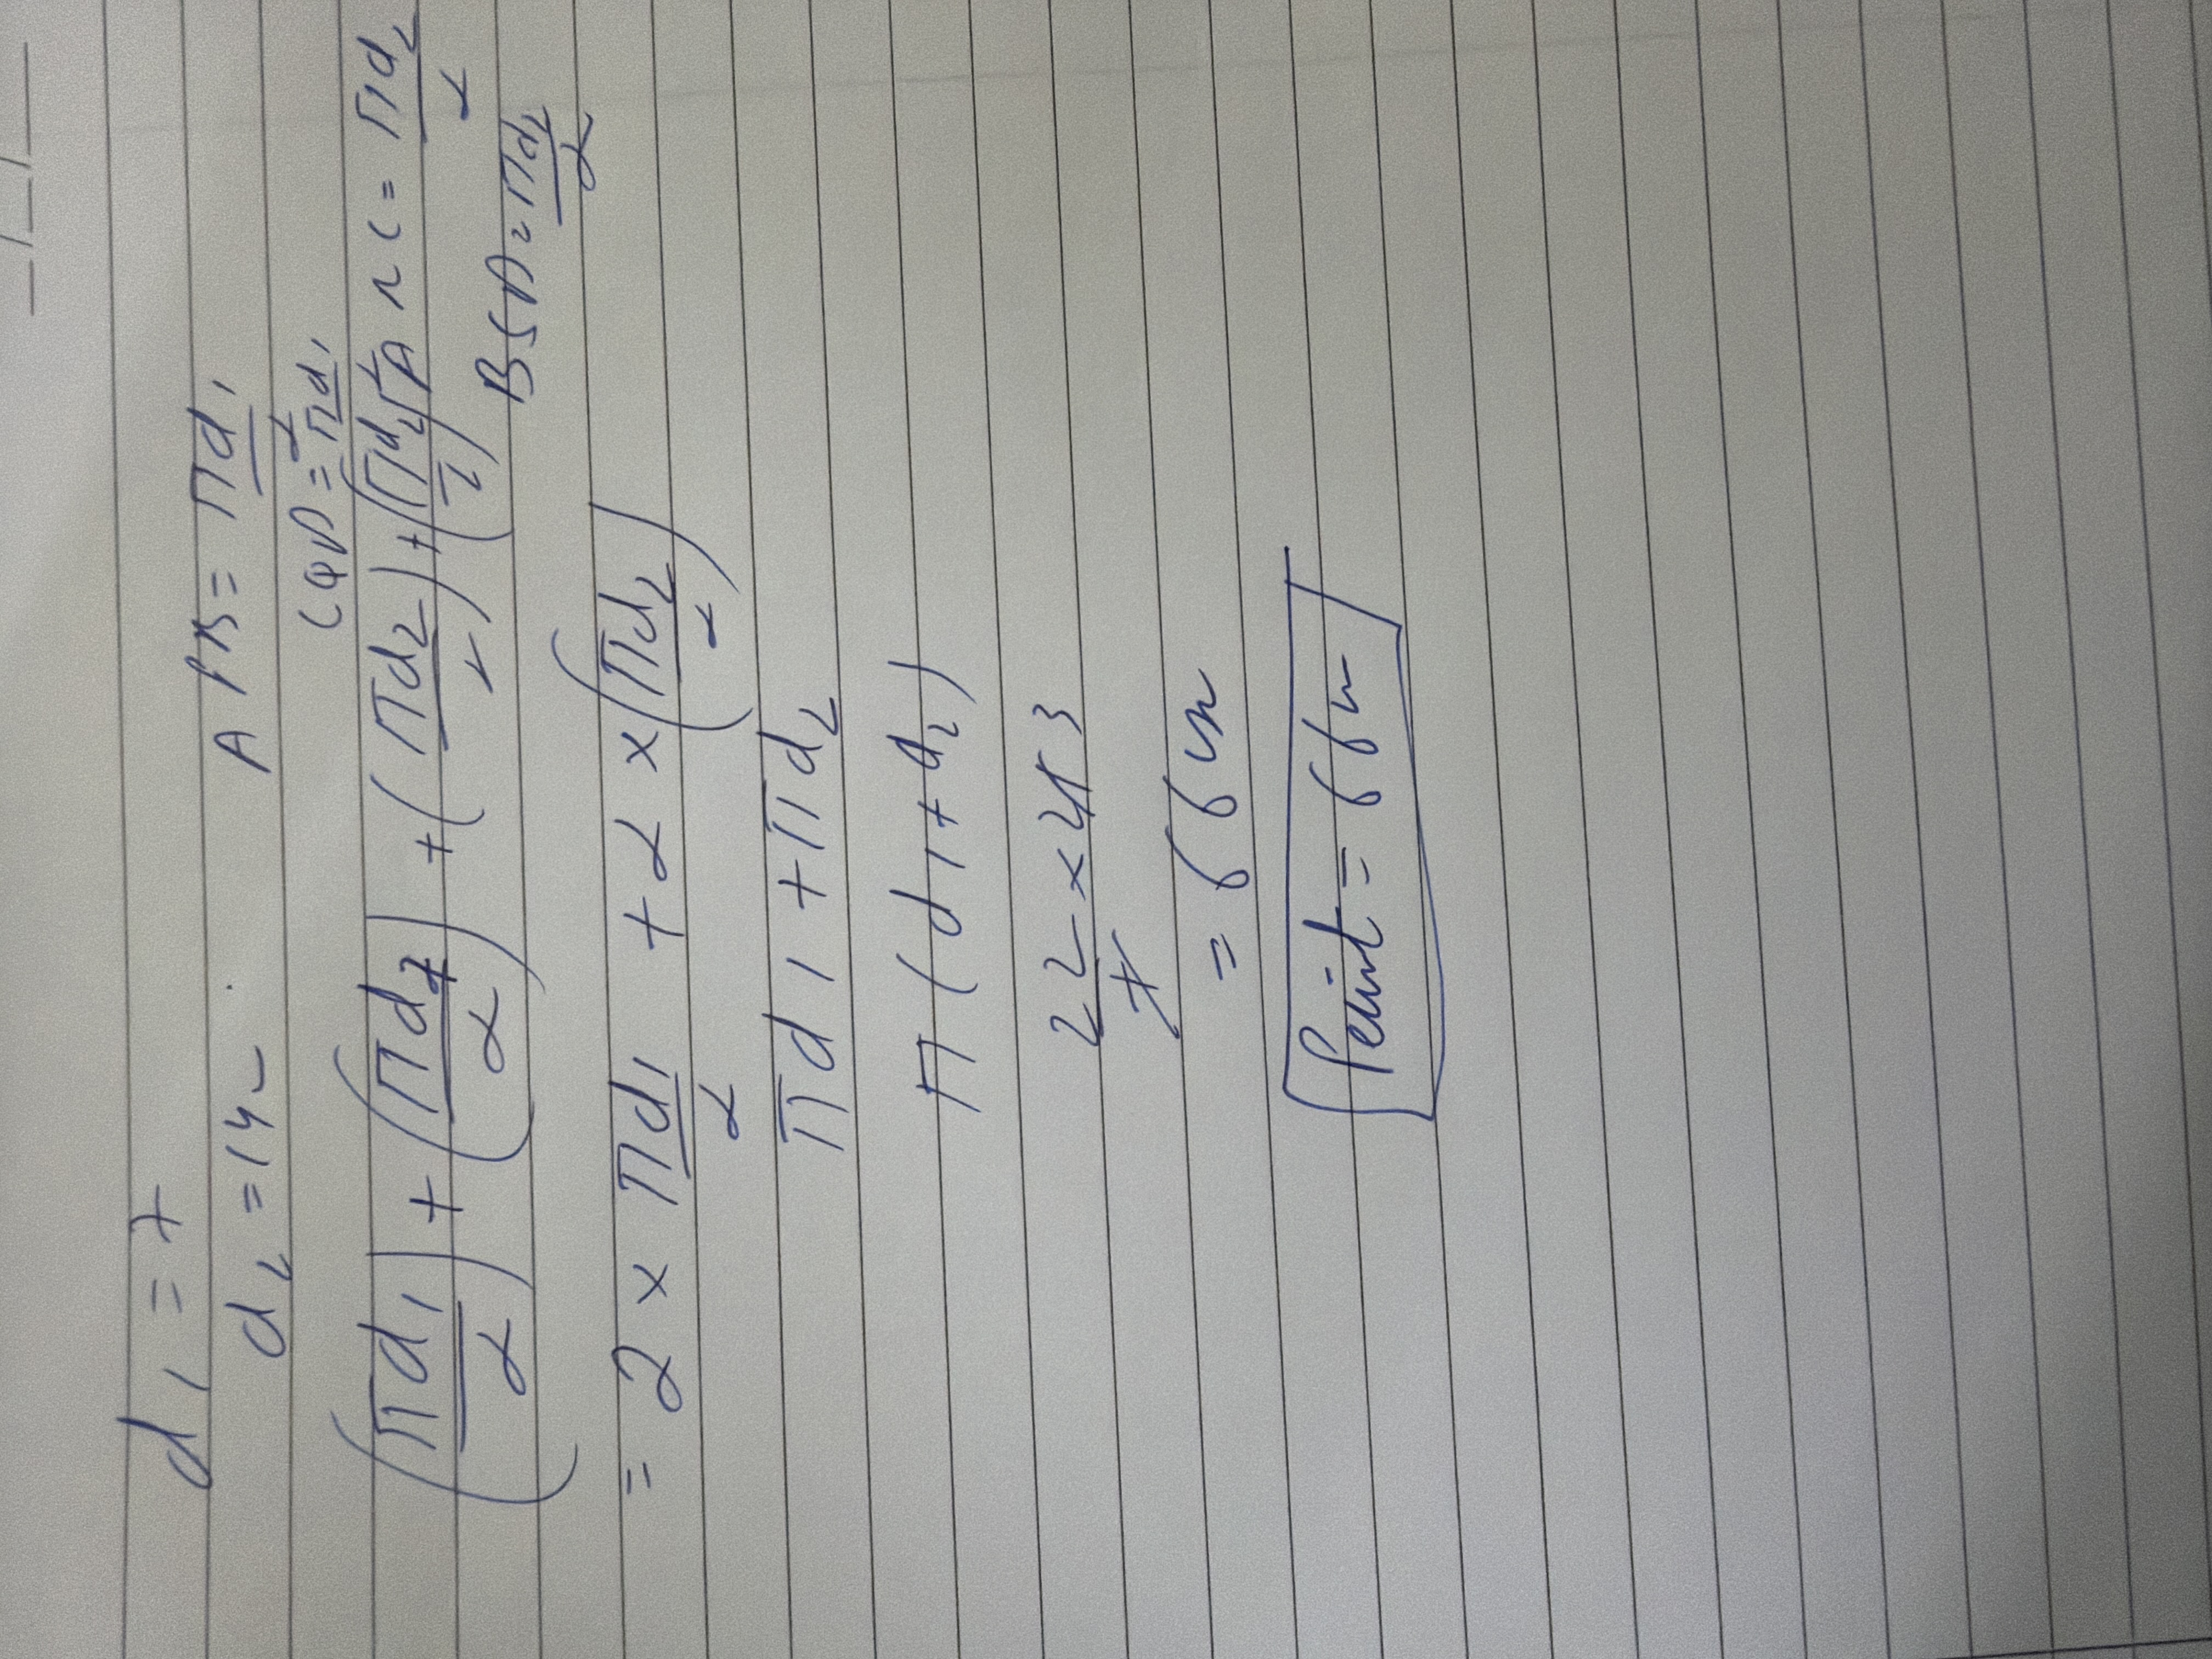 d1 = 7
d2 = 14
APB = πd1/2
CQD = πd1/2
ARC = πd2/2
BSD = πd2/2
(πd1/2) + (πd2/2) + (πd2/2) + (πd2/2)
= 2 × πd1/2 + 2 × (πd2/2)
πd1 + πd2
π(d1 + d2)
22/7 × 21 3
= 66
= 66